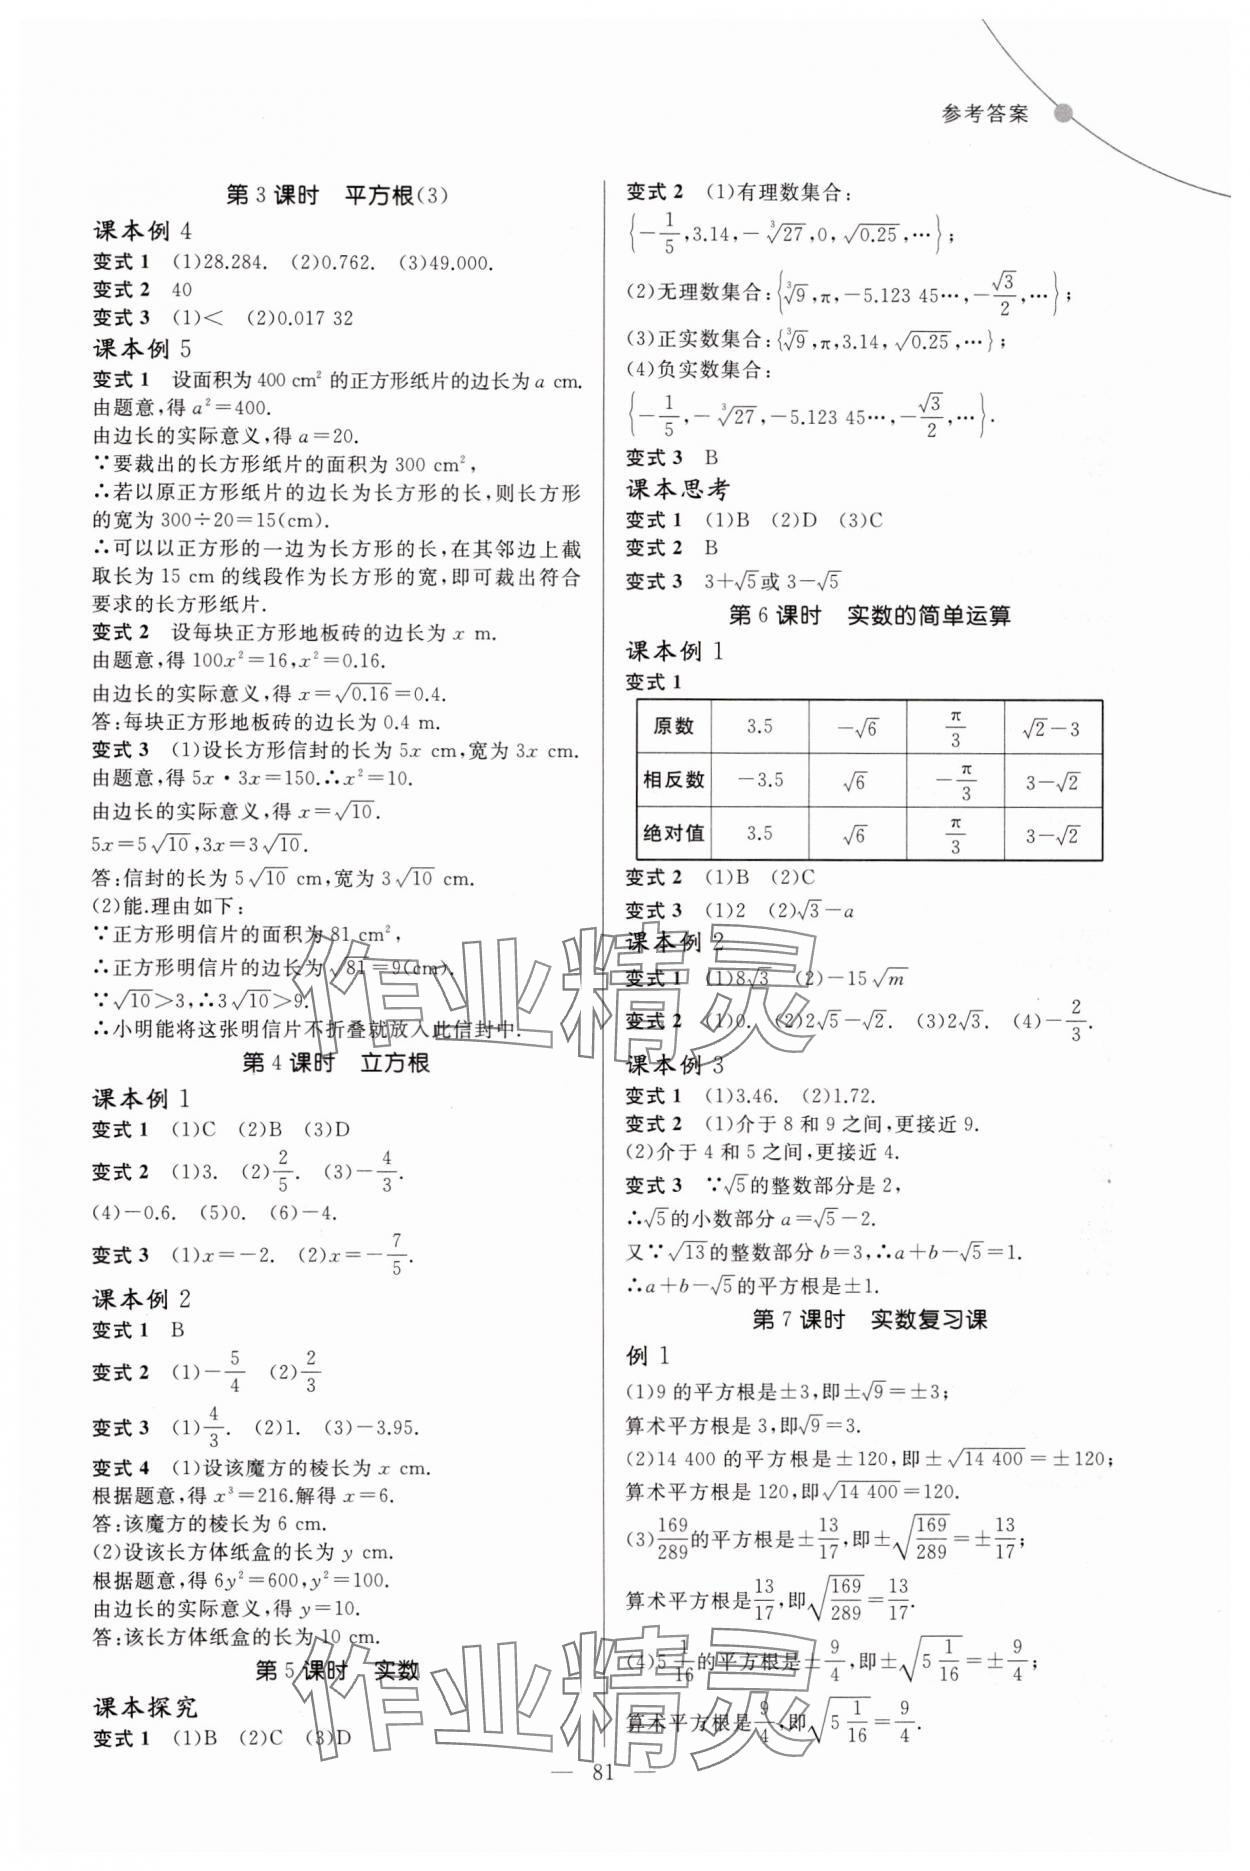 参考答案
第 3 课时　平方根(3)
课本例 4
变式 1　(1)28.284.　(2)0.762.　(3)49.000.
变式 2　40
变式 3　(1)＜　(2)0.017 32
课本例 5
变式 1　设面积为 400 cm² 的正方形纸片的边长为 a cm.
由题意,得 a²＝400.
由边长的实际意义,得 a＝20.
∵要裁出的长方形纸片的面积为 300 cm²,
∴若以原正方形纸片的边长为长方形的长,则长方形
的宽为 300÷20＝15(cm).
∴可以以正方形的一边为长方形的长,在其邻边上截
取长为 15 cm 的线段作为长方形的宽,即可裁出符合
要求的长方形纸片.
变式 2　设每块正方形地板砖的边长为 x m.
由题意,得 100x²＝16,x²＝0.16.
由边长的实际意义,得 x＝√0.16＝0.4.
答:每块正方形地板砖的边长为 0.4 m.
变式 3　(1)设长方形信封的长为 5x cm,宽为 3x cm.
由题意,得 5x・3x＝150.∴x²＝10.
由边长的实际意义,得 x＝√10.
5x＝5√10,3x＝3√10.
答:信封的长为 5√10 cm,宽为 3√10 cm.
(2)能.理由如下:
∵正方形明信片的面积为 81 cm²,
∴正方形明信片的边长为 √81＝9(cm).
∵√10＞3,∴3√10＞9.
∴小明能将这张明信片不折叠就放入此信封中.
第 4 课时　立方根
课本例 1
变式 1　(1)C　(2)B　(3)D
变式 2　(1)3.　(2)2/5.　(3)－4/3.
(4)－0.6.　(5)0.　(6)－4.
变式 3　(1)x＝－2.　(2)x＝－7/5.
课本例 2
变式 1　B
变式 2　(1)－5/4　(2)2/3
变式 3　(1)4/3.　(2)1.　(3)－3.95.
变式 4　(1)设该魔方的棱长为 x cm.
根据题意,得 x³＝216.解得 x＝6.
答:该魔方的棱长为 6 cm.
(2)设该长方体纸盒的长为 y cm.
根据题意,得 6y²＝600,y²＝100.
由边长的实际意义,得 y＝10.
答:该长方体纸盒的长为 10 cm.
第 5 课时　实数
课本探究
变式 1　(1)B　(2)C　(3)D
变式 2　(1)有理数集合:
{－1/5,3.14,－³√27,0,√0.25,…};
(2)无理数集合:{³√9,π,－5.123 45…,－√3/2,…};
(3)正实数集合:{³√9,π,3.14,√0.25,…};
(4)负实数集合:
{－1/5,－³√27,－5.123 45…,－√3/2,…}.
变式 3　B
课本思考
变式 1　(1)B　(2)D　(3)C
变式 2　B
变式 3　3＋√5或 3－√5
第 6 课时　实数的简单运算
课本例 1
变式 1
原数　3.5　－√6　π/3　√2－3
相反数　－3.5　√6　－π/3　3－√2
绝对值　3.5　√6　π/3　3－√2
变式 2　(1)B　(2)C
变式 3　(1)2　(2)√3－a
课本例 2
变式 1　(1)8√3　(2)－15√m
变式 2　(1)0.　(2)2√5－√2.　(3)2√3.　(4)－2/3.
课本例 3
变式 1　(1)3.46.　(2)1.72.
变式 2　(1)介于 8 和 9 之间,更接近 9.
(2)介于 4 和 5 之间,更接近 4.
变式 3　∵√5的整数部分是 2,
∴√5的小数部分 a＝√5－2.
又∵√13的整数部分 b＝3,∴a＋b－√5＝1.
∴a＋b－√5的平方根是±1.
第 7 课时　实数复习课
例 1
(1)9 的平方根是±3,即±√9＝±3;
算术平方根是 3,即√9＝3.
(2)14 400 的平方根是±120,即±√14 400＝±120;
算术平方根是 120,即√14 400＝120.
(3)169/289的平方根是±13/17,即±√(169/289)＝±13/17;
算术平方根是13/17,即√(169/289)＝13/17.
(4)5 1/16的平方根是±9/4,即±√(5 1/16)＝±9/4;
算术平方根是9/4,即√(5 1/16)＝9/4.
— 81 —
作业精灵
作业精灵